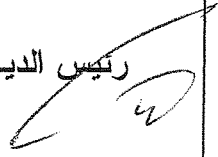 رئيس الديـ